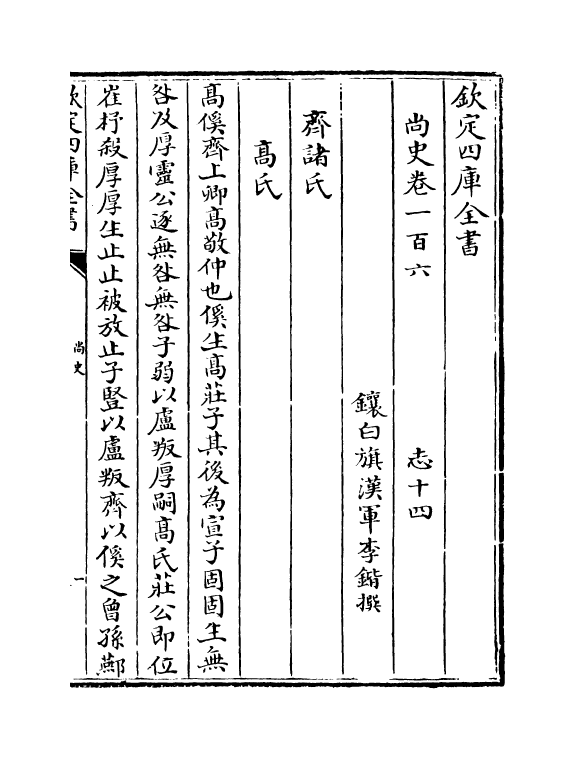 欽定四庫全書
尚史卷一百六　　志十四
鑲白旗漢軍李鍇撰
齊諸氏
高氏
高傒齊上卿高敬仲也傒生高莊子其後為宣子固固生無
咎及厚靈公逐無咎無咎子弱以盧叛厚嗣高氏莊公即位
崔杼殺厚厚生止止被放止子豎以盧叛齊以傒之曾孫酀
欽定四庫全書
尚史
一